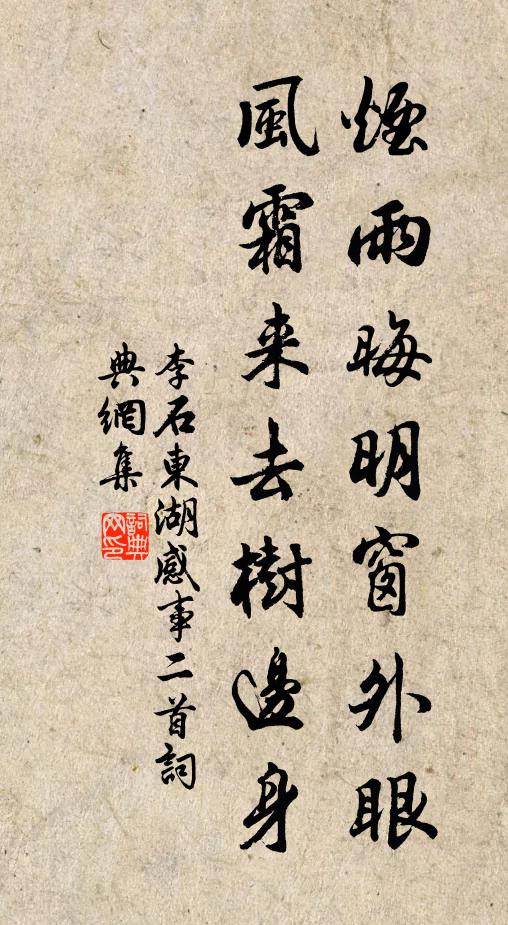 煙雨晦明窗外眼
風霜来去樹邊身
李石東湖感事二首詞
典網集
詞典网印